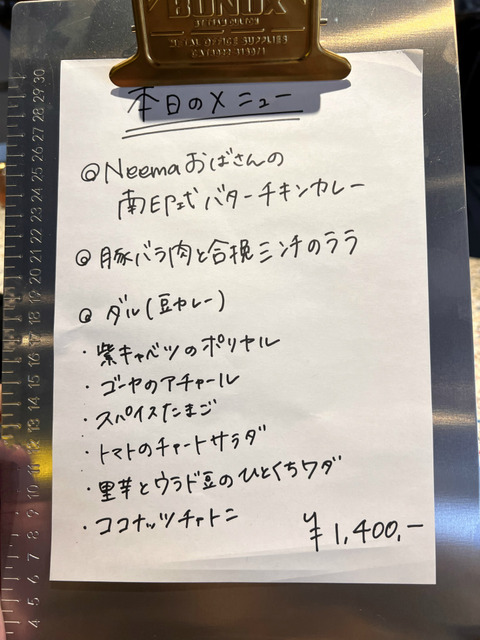 BONOX
METAL OFFICE SUPPLIES
本日のメニュー
@Neemaおばさんの
南印式バターチキンカレー
@豚バラ肉と合挽ミンチのララ
@ダル(豆カレー)
・紫キャベツのポリヤル
・ゴーヤのアチャール
・スパイスたまご
・トマトのチャートサラダ
・里芋とウラド豆のひとくちワダ
・ココナッツチャトニ
¥1,400.-
30
29
28
27
26
25
24
23
22
21
20
19
18
17
16
15
14
13
12
11
10
9
8
7
6
5
4